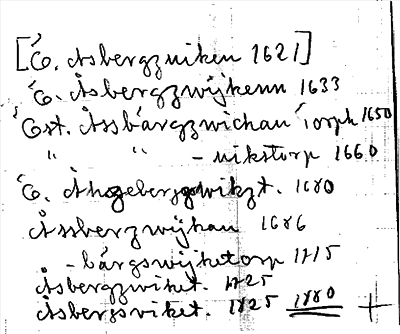 [Ö. Åsbergzuiken 1621]
Ö. Åsbergzwijkenn 1633
Öst. Åssbärgzwichau Torph 1650
" " - uikstorp 1660
Ö. Åhsgebersgwikzt. 1680
Åssbergzwijkan 1686
- bärgswijketorp 1715
Åsbergzwiket. 1725
Åsbergsviket. 1825 1880 +